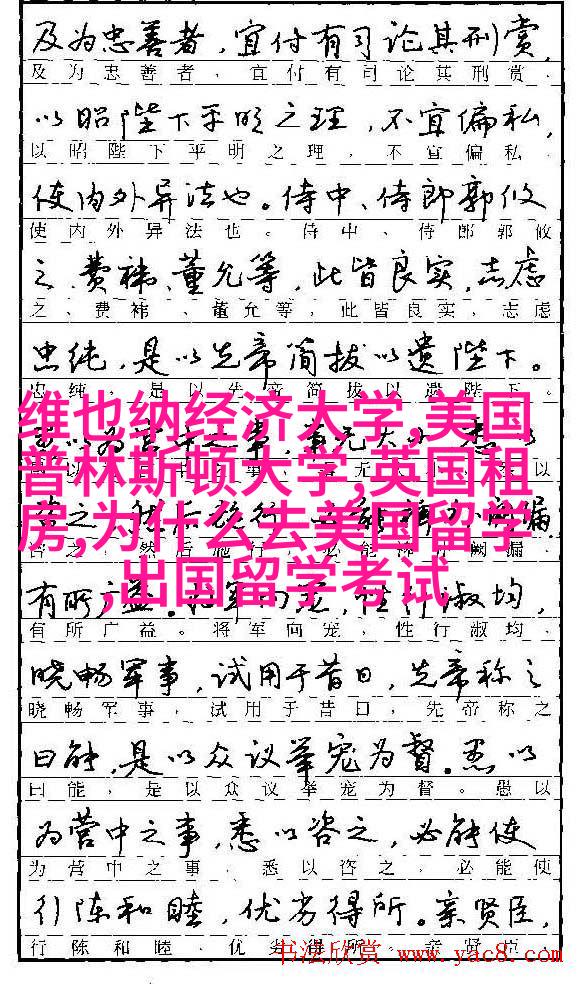 及为忠善者，宜付有司论其刑赏，
及为忠善者，宜付有司论其刑赏，
以昭陛下平明之理，不宜偏私，
以昭陛下平明之理，不宜偏私，
使内外异法也。侍中、侍郎郭攸
使内外异法也。侍中、侍郎郭攸
之、费祎、董允等，此皆良实，志虑
之、费祎、董允等，此皆良实，志虑
忠纯，是以先帝简拔以遗陛下。
忠纯，是以先帝简拔以遗陛下。
维也纳经济大学,美国
普林斯顿大学,英国租
房,为什么去美国留学
出国留学考试
有所广益。将军向宠，性行淑均，
有所广益。将军向宠，性行淑均，
晓畅军事，试用于昔日，先帝称之
晓畅军事，试用于昔日，先帝称之
曰能，是以众议举宠为督。愚以
曰能，是以众议举宠为督。愚以
为营中之事，悉以咨之，必能使
为营中之事，悉以咨之，必能使
行陈和睦，优劣得所。亲贤臣，
行陈和睦，优劣得所。亲贤臣，
书法欣赏 www.yac8.com